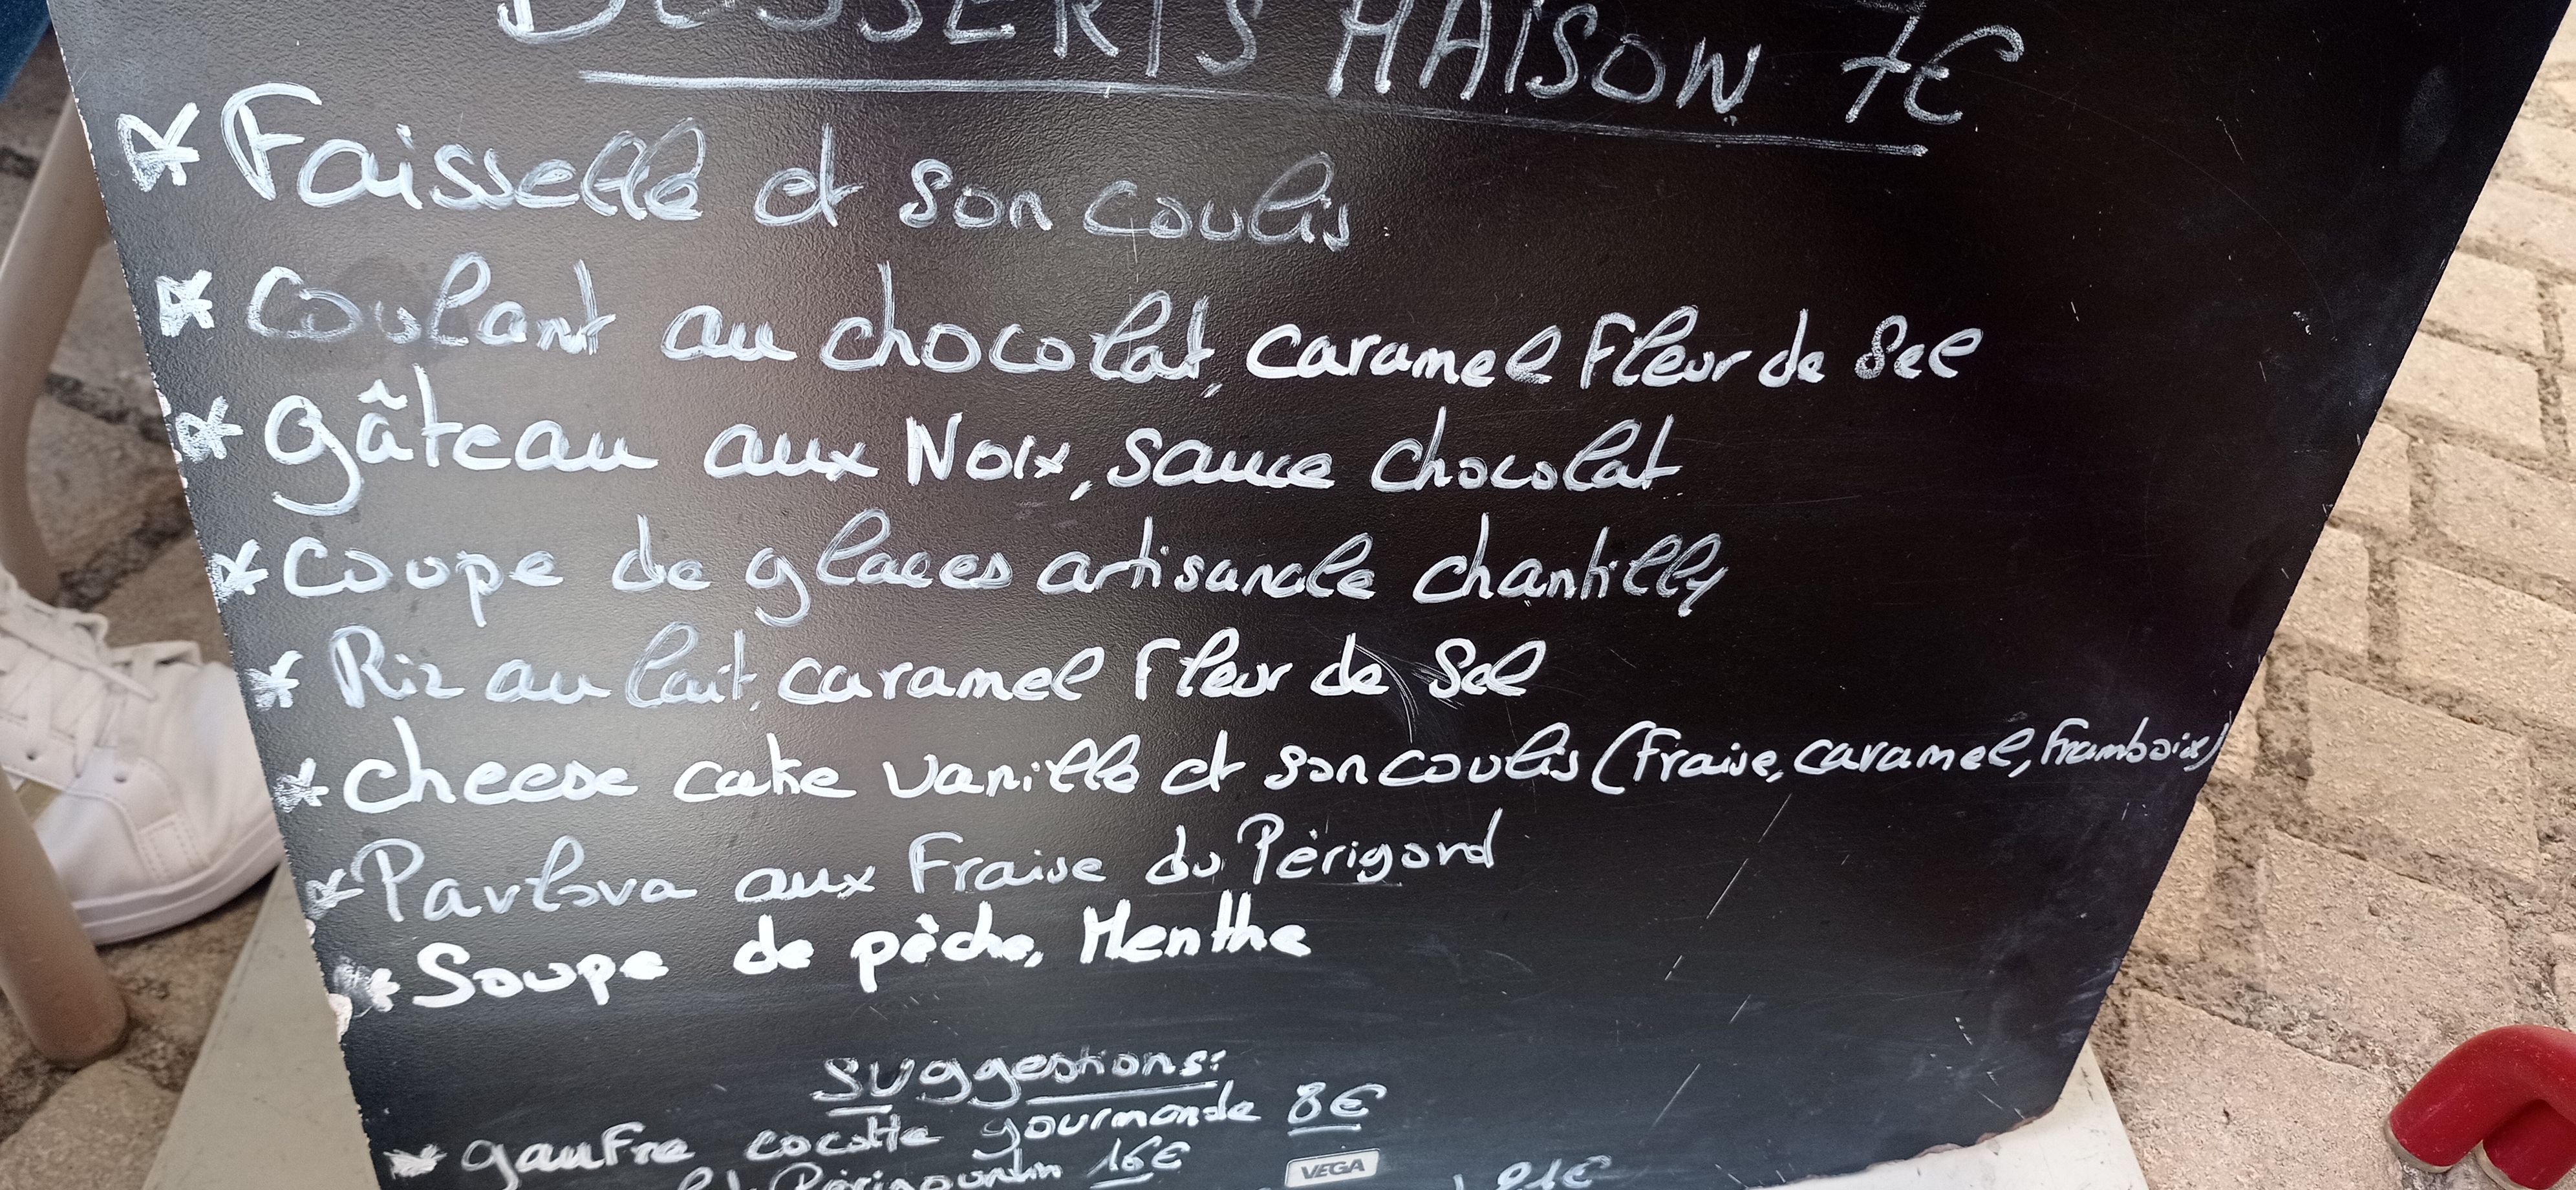 DESSERTS MAISON 7€
* Faisselle et son coulis
* Coulant au chocolat, caramel Fleur de Sel
* gâteau aux Noix, sauce chocolat
* Coupe de glaces artisanale chantilly
* Riz au lait, caramel Fleur de Sel
* cheese cake vanille et son coulis (Fraise, caramel, Framboise)
* Pavlova aux Fraise du Périgord
* Soupe de pèche, Menthe
Suggestions:
* gaufre cocotte gourmande 8€
Périgourdin 16€
VEGA